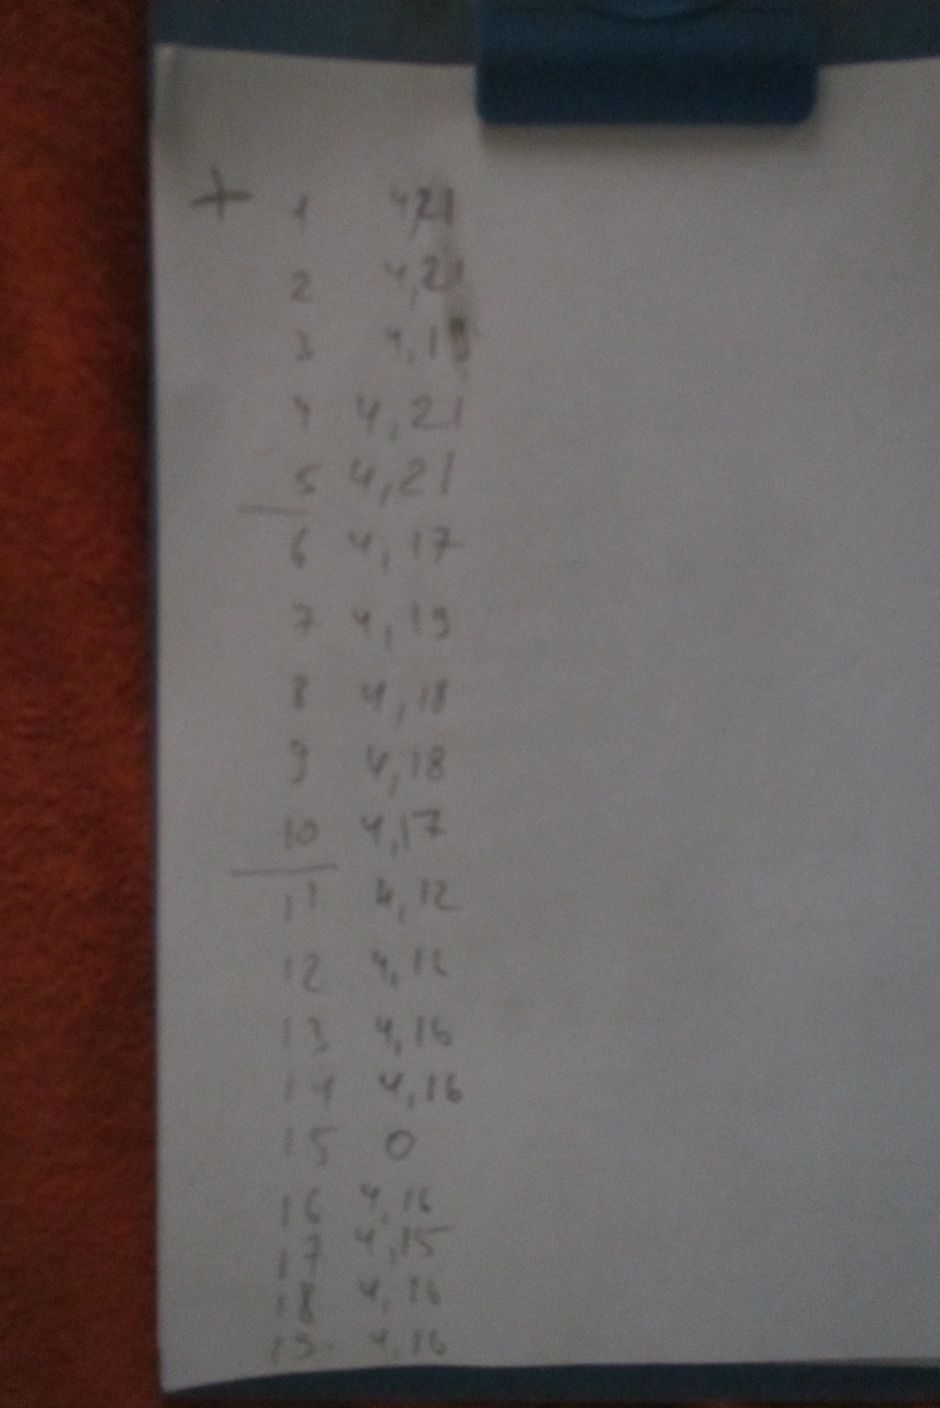 + 1 4,21
2 4,21
3 4,19
4 4,21
5 4,21
6 4,17
7 4,19
8 4,18
9 4,18
10 4,17
11 4,12
12 4,16
13 4,16
14 4,16
15 0
16 4,16
17 4,15
18 4,16
19. 4,16